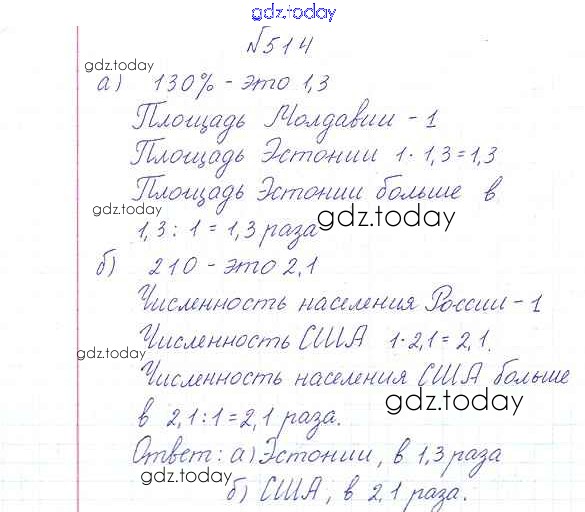 gdz.today
№514
gdz.today
а) 130% - это 1,3
Площадь Молдавии - 1
Площадь Эстонии 1 · 1,3 = 1,3
Площадь Эстонии больше в
gdz.today
gdz.today
1,3 : 1 = 1,3 раза
б) 210 - это 2,1
Численность населения России - 1
Численность США 1 · 2,1 = 2,1.
gdz.today
Численность населения США больше
gdz.today
в 2,1 : 1 = 2,1 раза.
Ответ: а) Эстонии, в 1,3 раза
gdz.today
б) США, в 2,1 раза.